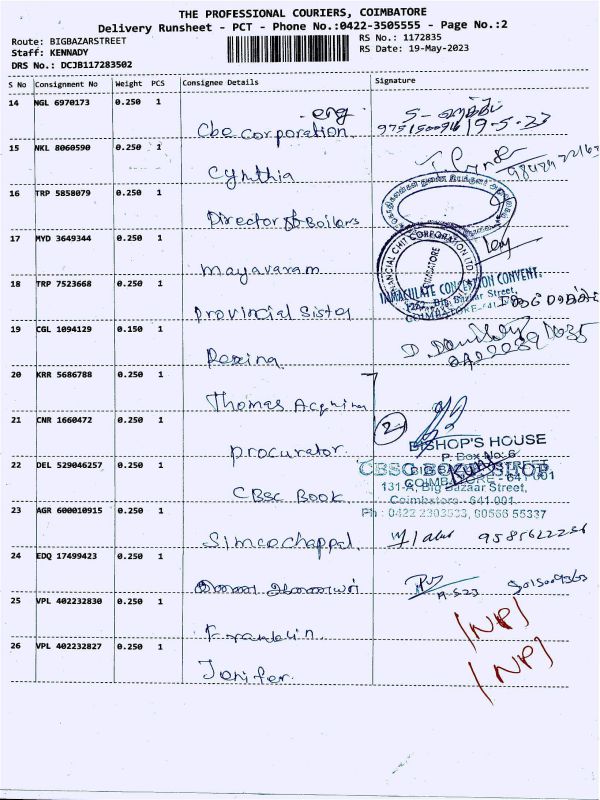 THE PROFESSIONAL COURIERS, COIMBATORE
Delivery Runsheet - PCT - Phone No.:0422-3505555 - Page No.:2
Route: BIGBAZARSTREET
RS No.: 1172835
Staff: KENNADY
RS Date: 19-May-2023
DRS No.: DCJB117283502
S No Consignment No Weight PCS Consignee Details Signature
14 NGL 6970173 0.250 1 Cbe Corporation - eng 19-5-23
15 NKL 8060590 0.250 1 Cynthia
16 TRP 5858079 0.250 1 Director of Boilers
17 MYD 3649344 0.250 1 Mayavaram
FINANCIAL CHIT CORPORATION LTD
COIMBATORE
18 TRP 7523668 0.250 1 Provincial Sister
IMMACULATE CONVENT
Big Bazaar Street,
COIMBATORE-641
19 CGL 1094129 0.150 1
20 KRR 5686788 0.250 1 Thomas
21 CNR 1660472 0.250 1 procurator
2
BISHOP'S HOUSE
P. Box No: 6
COIMBATORE - 641 001
22 DEL 529046257 0.250 1 CBSC Book
CBSC BOOK SHOP
131-A, Big Bazaar Street,
Coimbatore - 641 001
Ph : 0422 2303533, 80566 55337
23 AGR 600010915 0.250 1 Simcochappal
24 EDQ 17499423 0.250 1
25 VPL 402232830 0.250 1 INPI
26 VPL 402232827 0.250 1 Jenifer INPI